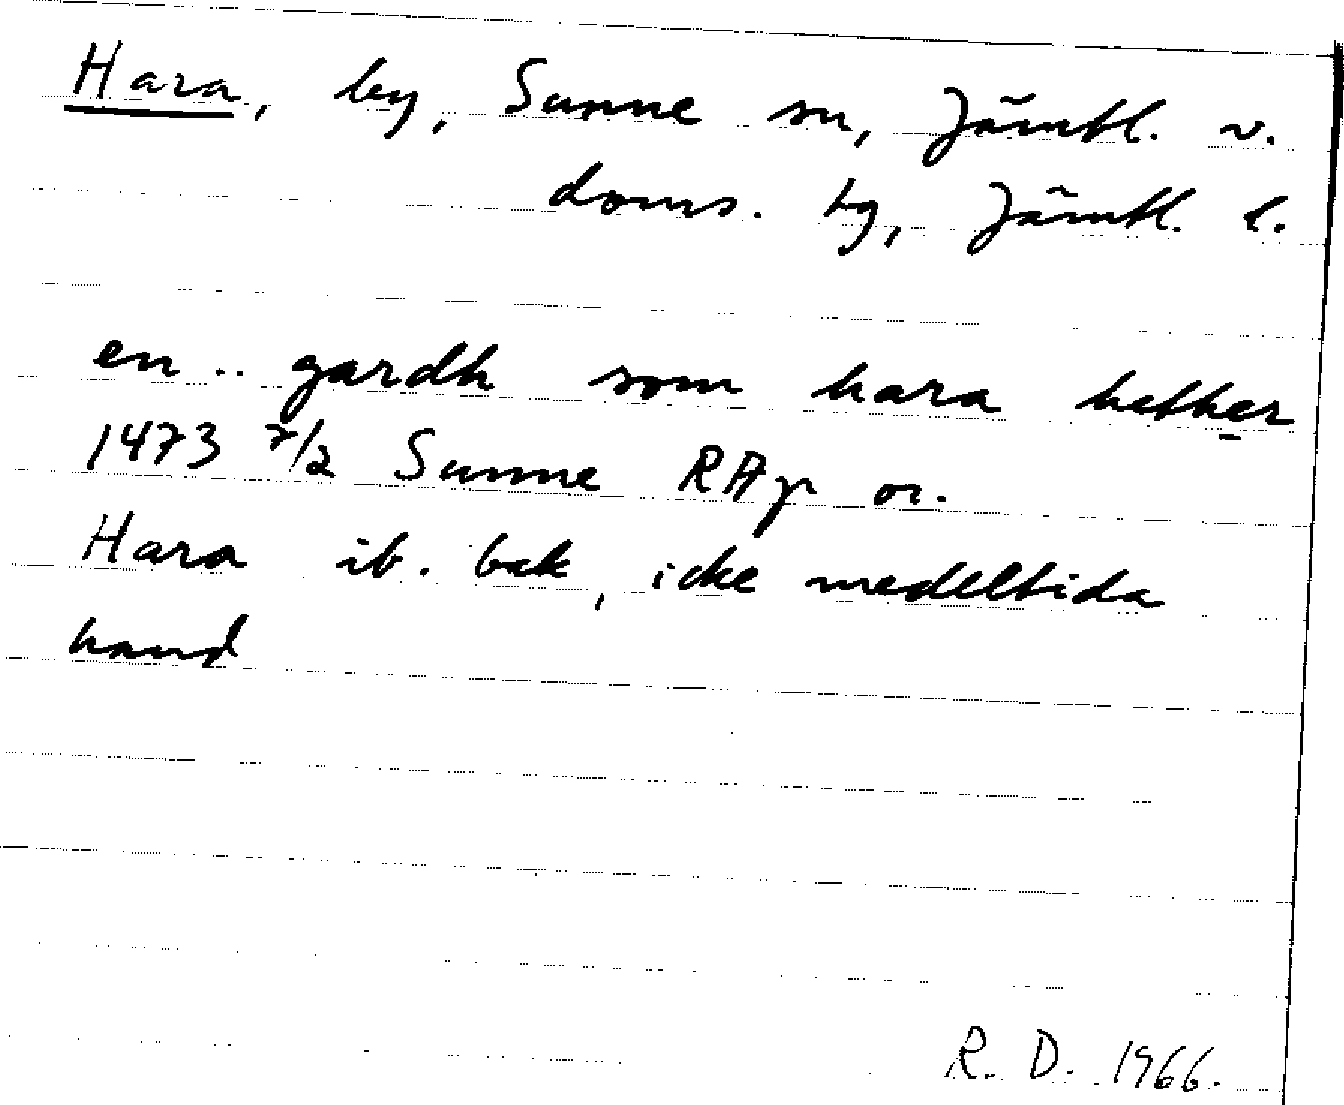 Hara, by, Sunne sn, Jämtl. v.
doms. tg, Jämtl. l.
en .. gardh som hara hether
1473 7/2 Sunne RAp or.
Hara ib. bak, icke medeltida
hand
R. D. 1966.